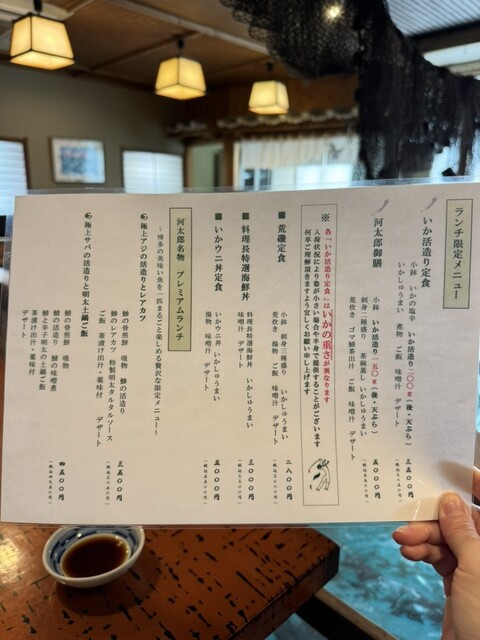 ランチ限定メニュー
いか活造り定食
小鉢 いかの塩辛 いか活造り一〇〇g(後・天ぷら)
いかしゅうまい 煮物 ご飯 味噌汁 デザート
三五〇〇円
(税込三八五〇円)
河太郎御膳
小鉢 いか活造り一五〇g(後・天ぷら)
刺身二種盛り 茶碗蒸し いかしゅうまい
荒炊き ゴマ鯖茶出汁 ご飯 味噌汁 デザート
五〇〇〇円
(税込五五〇〇円)
※ 各「いか活造り定食」はいかの重さが異なります
入荷状況により姿が小さい場合や半身で提供することがございます
何卒ご理解頂きますよう宜しくお願い申し上げます
■ 荒磯定食
小鉢 刺身三種盛り いかしゅうまい
荒炊き 揚物 ご飯 味噌汁 デザート
二八〇〇円
■ 料理長特選海鮮丼
料理長特選海鮮丼 いかしゅうまい
味噌汁 デザート
三〇〇〇円
(税込三三〇〇円)
■ いかウニ丼定食
いかウニ丼 いかしゅうまい
揚物 味噌汁 デザート
五〇〇〇円
(税込五五〇〇円)
河太郎名物 プレミアムランチ
~博多の美味い魚を一匹まるごと楽しめる贅沢な限定メニュー~
極上アジの活造りとレアカツ
鯵の骨煎餅 吸物 鯵の活造り
鯵のレアカツ 特製明太タルタルソース
ご飯 茶漬け出汁・薬味付 デザート
三五〇〇円
(税込三八五〇円)
極上サバの活造りと明太土鍋ご飯
鯖の骨煎餅 吸物
鯖の活造り 鯖の味噌煮
鯖と辛子明太の土鍋ご飯
茶漬け出汁・薬味付
デザート
四五〇〇円
(税込四九五〇円)